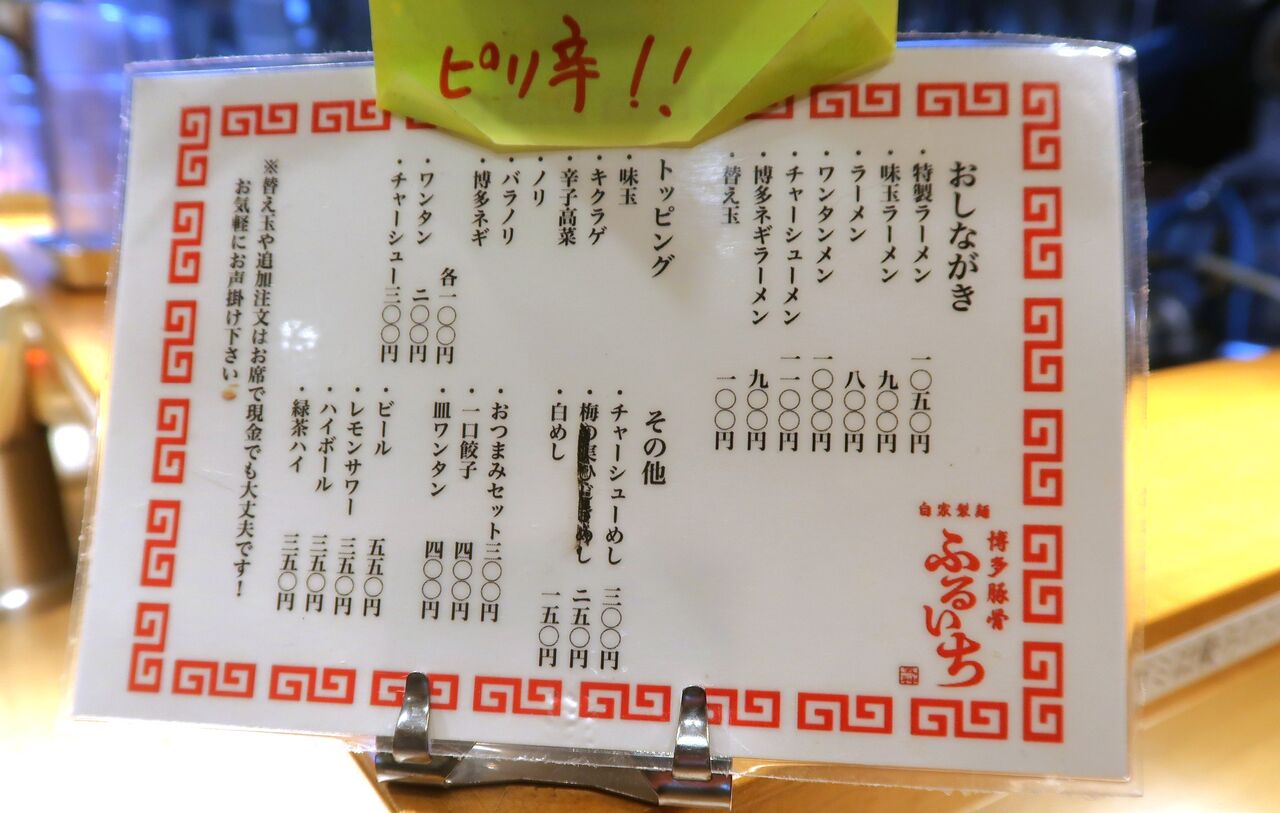 ピリ辛!!
おしながき
・特製ラーメン 一〇五〇円
・味玉ラーメン 九〇〇円
・ラーメン 八〇〇円
・ワンタンメン 一〇〇〇円
・チャーシューメン 一一〇〇円
・博多ネギラーメン 九〇〇円
・替え玉 一〇〇円
トッピング
・味玉
・キクラゲ
・辛子高菜
・ノリ
・バラノリ
・博多ネギ 各一〇〇円
・ワンタン 二〇〇円
・チャーシュー 三〇〇円
その他
・チャーシューめし 三〇〇円
・梅 めし 二五〇円
・白めし 一五〇円
・おつまみセット 三〇〇円
・一口餃子 四〇〇円
・皿ワンタン 四〇〇円
・ビール 五五〇円
・レモンサワー 三五〇円
・ハイボール 三五〇円
・緑茶ハイ 三五〇円
※替え玉や追加注文はお席で現金でも大丈夫です!
お気軽にお声掛け下さい
自家製麺
博多豚骨
ふるいち